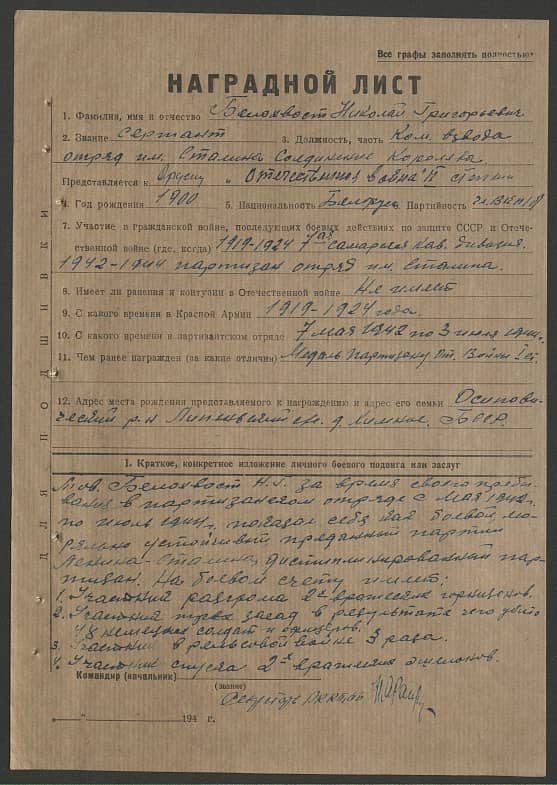 Все графы заполнять полностью
НАГРАДНОЙ ЛИСТ
1. Фамилия, имя и отчество Белохвост Николай Григорьевич
2. Звание Сержант 3. Должность, часть Ком. взвода
отряд им. Сталина Соединение Королева
Представляется к Ордену „Отечественная война" II степени
4. Год рождения 1900 5. Национальность Белорус Партийность чл. ВКП(б)
7. Участие в гражданской войне, последующих боевых действиях по защите СССР и Отече-
ственной войне (где, когда) 1919-1924 7ая самарская кав. дивизия.
1942-1944 партизан отряд им. Сталина.
8. Имеет ли ранения и контузии в Отечественной войне Не имеет
9. С какого времени в Красной Армии 1919-1924 года.
10. С какого времени в партизантском отряде 7 мая 1942 по 3 июля 1944г.
11. Чем ранее награжден (за какие отличия) Медаль Партизану От. Войны I ст.
12. Адрес места рождения представляемого к награждению и адрес его семьи Осипови-
ческий р-н Липеньский с/с. д. БССР.
ДЛЯ ПОДШИВКИ
I. Краткое, конкретное изложение личного боевого подвига или заслуг
Тов. Белохвост Н.Г. за время своего пребы-
вания в партизанском отряде с мая 1942г.
по июль 1944г. показал себя как боевой мо-
рально устойчивый преданный партии
Ленина-Сталина, дисциплинированный пар-
тизан. На боевом счету имеет:
1. Участник разгрома 2х вражеских гарнизонов.
2. Участник трех засад в результате чего убито
48 немецких солдат и офицеров.
3. Участник в рельсовой войне 3 раза.
4. Участник спуска 2х вражеских эшелонов.
Командир (начальник)
(звание)
Секретарь
" 194 г.